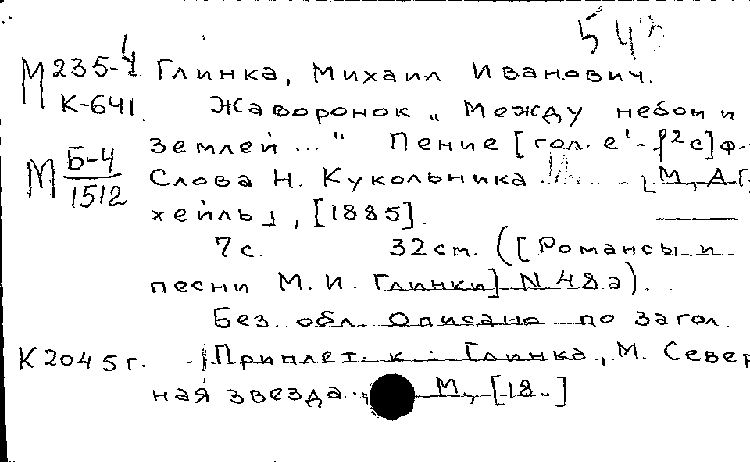 54
М 235-4 Глинка, Михаил Иванович.
К-641. Жаворонок „Между небом и
землей..." Пение [гол. e'-f²с] ф-
М Б-4/1512 Слова Н. Кукольника ... [М, А Г
хейль], [1885].
7 с. 32 см. ([Романсы и
песни М. И. Глинки] N 48а).
Без обл. Описано по загол.
К 2045 г. Приплет. к: Глинка, М. Север
ная звезда... М, [18..]